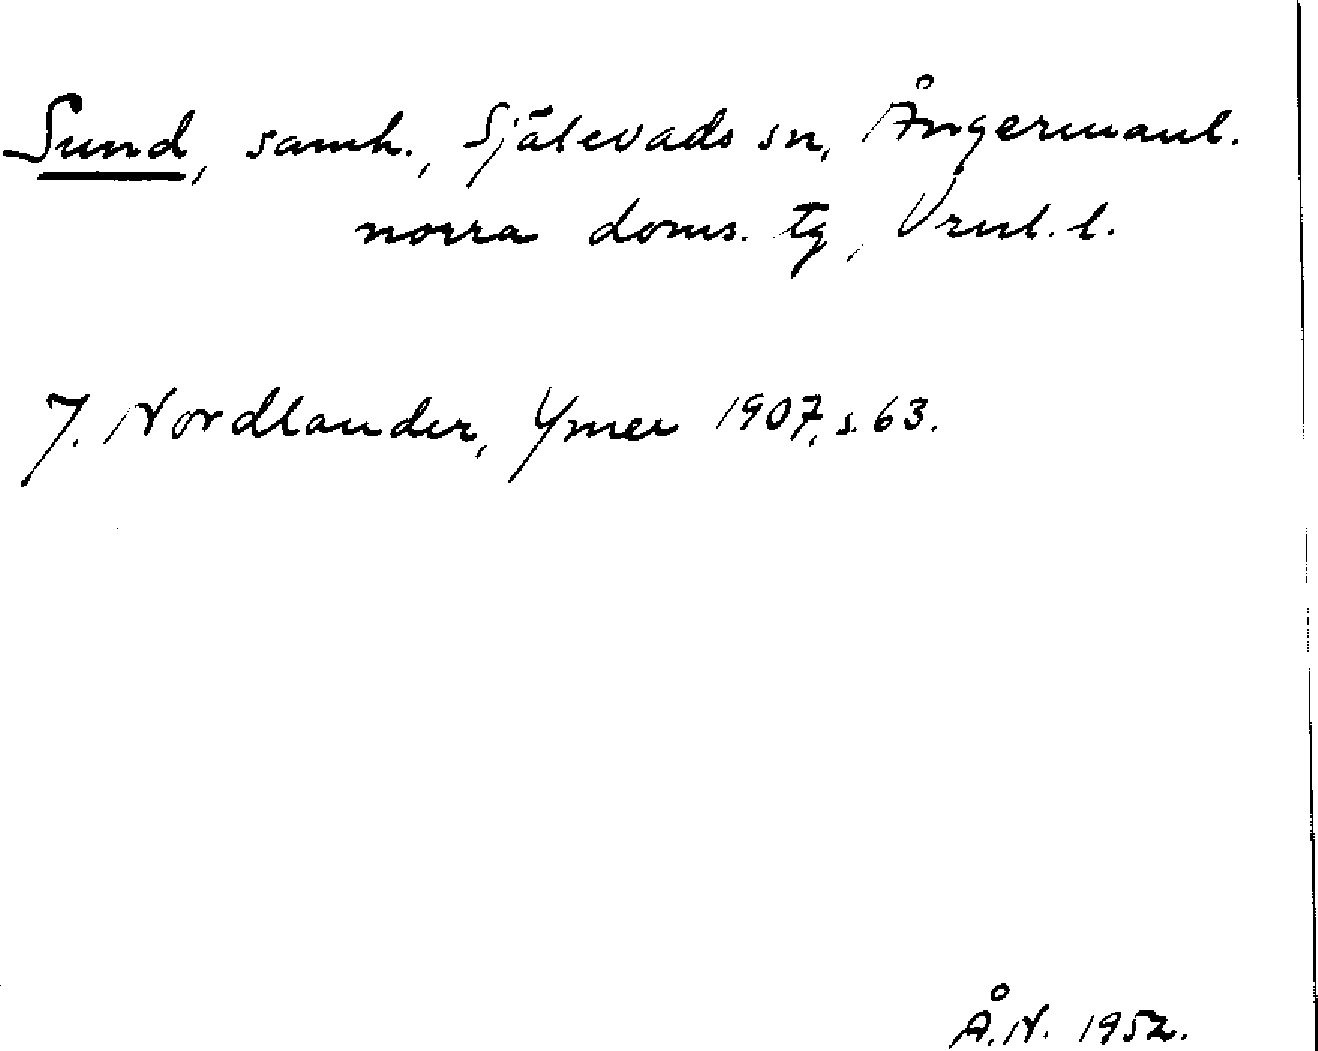 Sund, samh., Själevads sn, Ångermanl.
norra doms. tg, Vrnl. l.
J. Nordlander, Ymer 1907, s. 63.
Å.N. 1952.